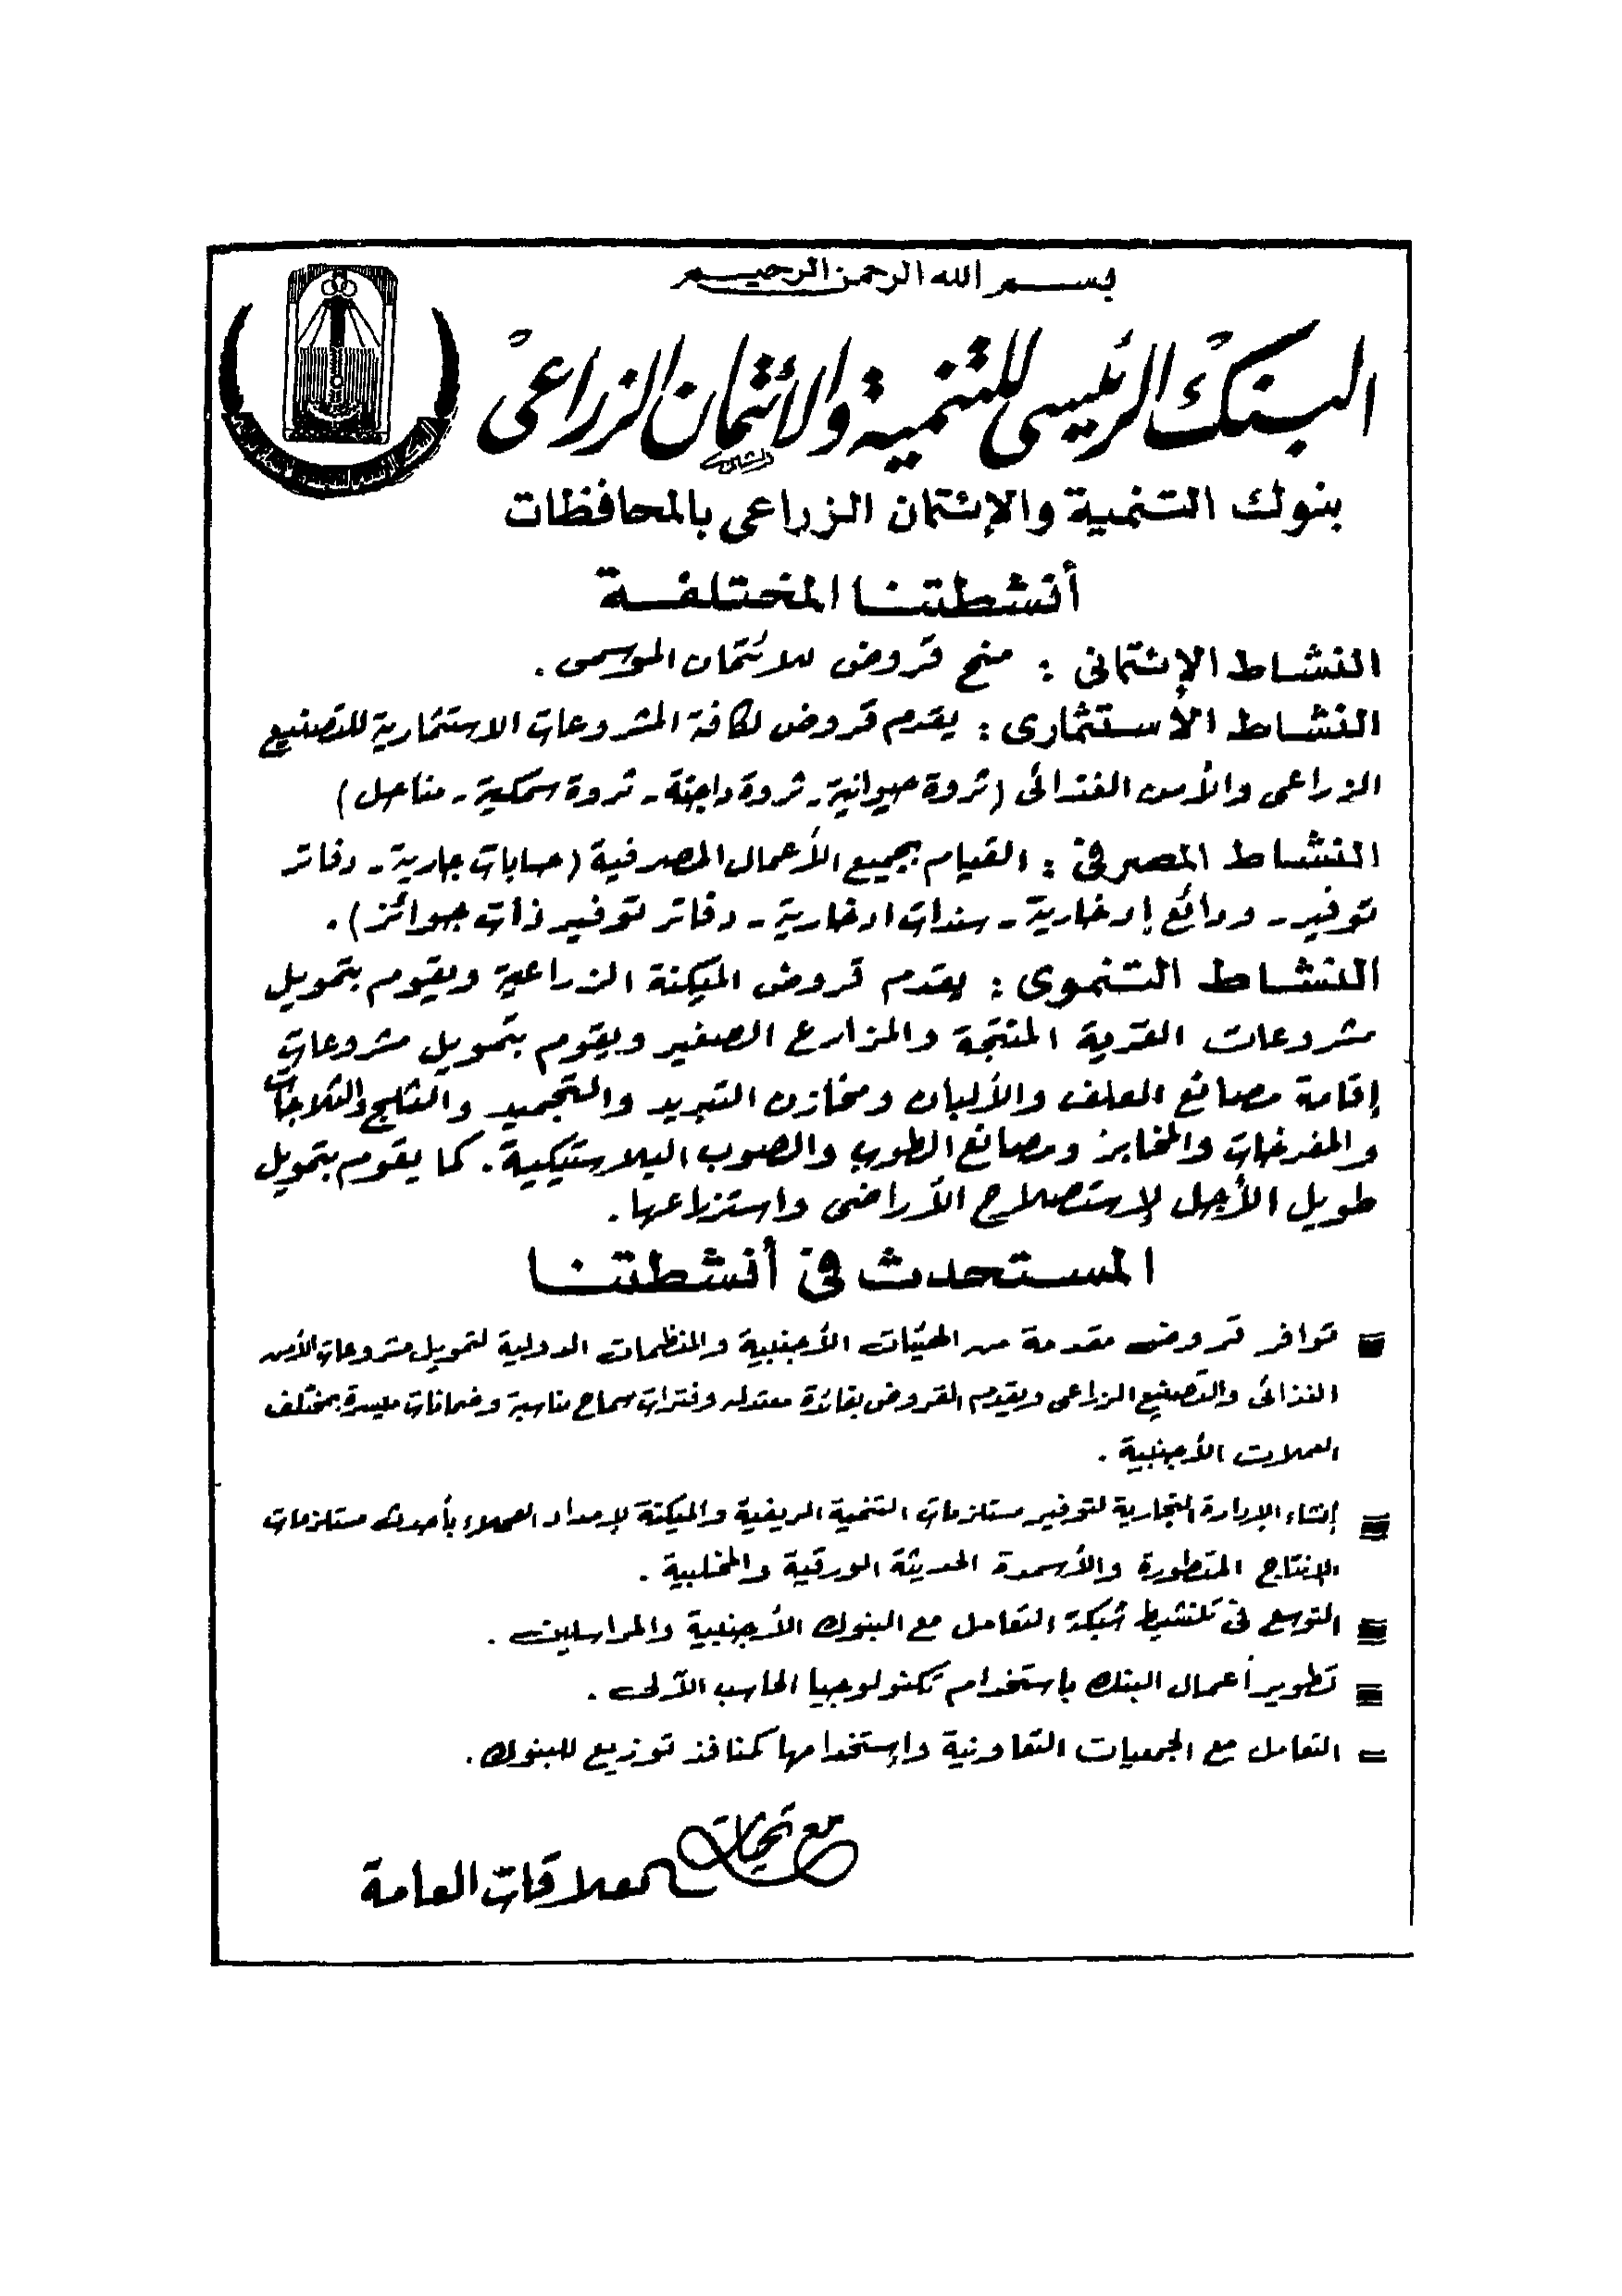 بسم الله الرحمن الرحيم
البنك الرئيسى للتنمية والائتمان الزراعى
بنوك التنمية والإئتمان الزراعى بالمحافظات
أنشطتنا المختلفة
النشاط الإئتمانى : منح قروض للائتمان الموسمى .
النشاط الأستثمارى : يقدم قروض لكافة المشروعات الاستثمارية للتصنيع
الزراعى والأمن الغذائى (ثروة حيوانية - ثروة داجنة - ثروة سمكية - مناحل)
النشاط المصرفى : القيام بجميع الأعمال المصرفية (حسابات جارية - دفاتر
توفير - ودائع إدخارية - سندات ادخارية - دفاتر توفير ذات جوائز) .
النشاط التنموى : يقدم قروض الميكنة الزراعية ويقوم بتمويل
مشروعات القرية المنتجة والمزارع الصغير ويقوم بتمويل مشروعات
إقامة مصانع العلف والألبان ومخازن التبريد والتجميد والثلج والثلاجات
والمفرخات والمخابز ومصانع الطوب والصوب البلاستيكية . كما يقوم بتمويل
طويل الأجل لإستصلاح الأراضى واستزراعها .
المستحدث فى أنشطتنا
توافر قروض مقدمة من الهيئات الأجنبية والمنظمات الدولية لتمويل مشروعات الأمن
الغذائى والتصنيع الزراعى ويقدم القروض بفائدة معتدله وفترات سماح مناسبة وضمانات ميسرة بمختلف
العملات الأجنبية .
إنشاء الإدارة التجارية لتوفير مستلزمات التنمية الريفية والميكنة لإمداد العملاء بأحدث مستلزمات
الإنتاج المتطورة والأسمدة الحديثة الورقية والمخلبية .
التوسع فى تنشيط شبكة التعامل مع البنوك الأجنبية والمراسلين .
تطوير أعمال البنك باستخدام تكنولوجيا الحاسب الآلى .
التعامل مع الجمعيات التعاونية وإستخدامها كمنافذ توزيع للبنوك .
مع تحيات
العلاقات العامة